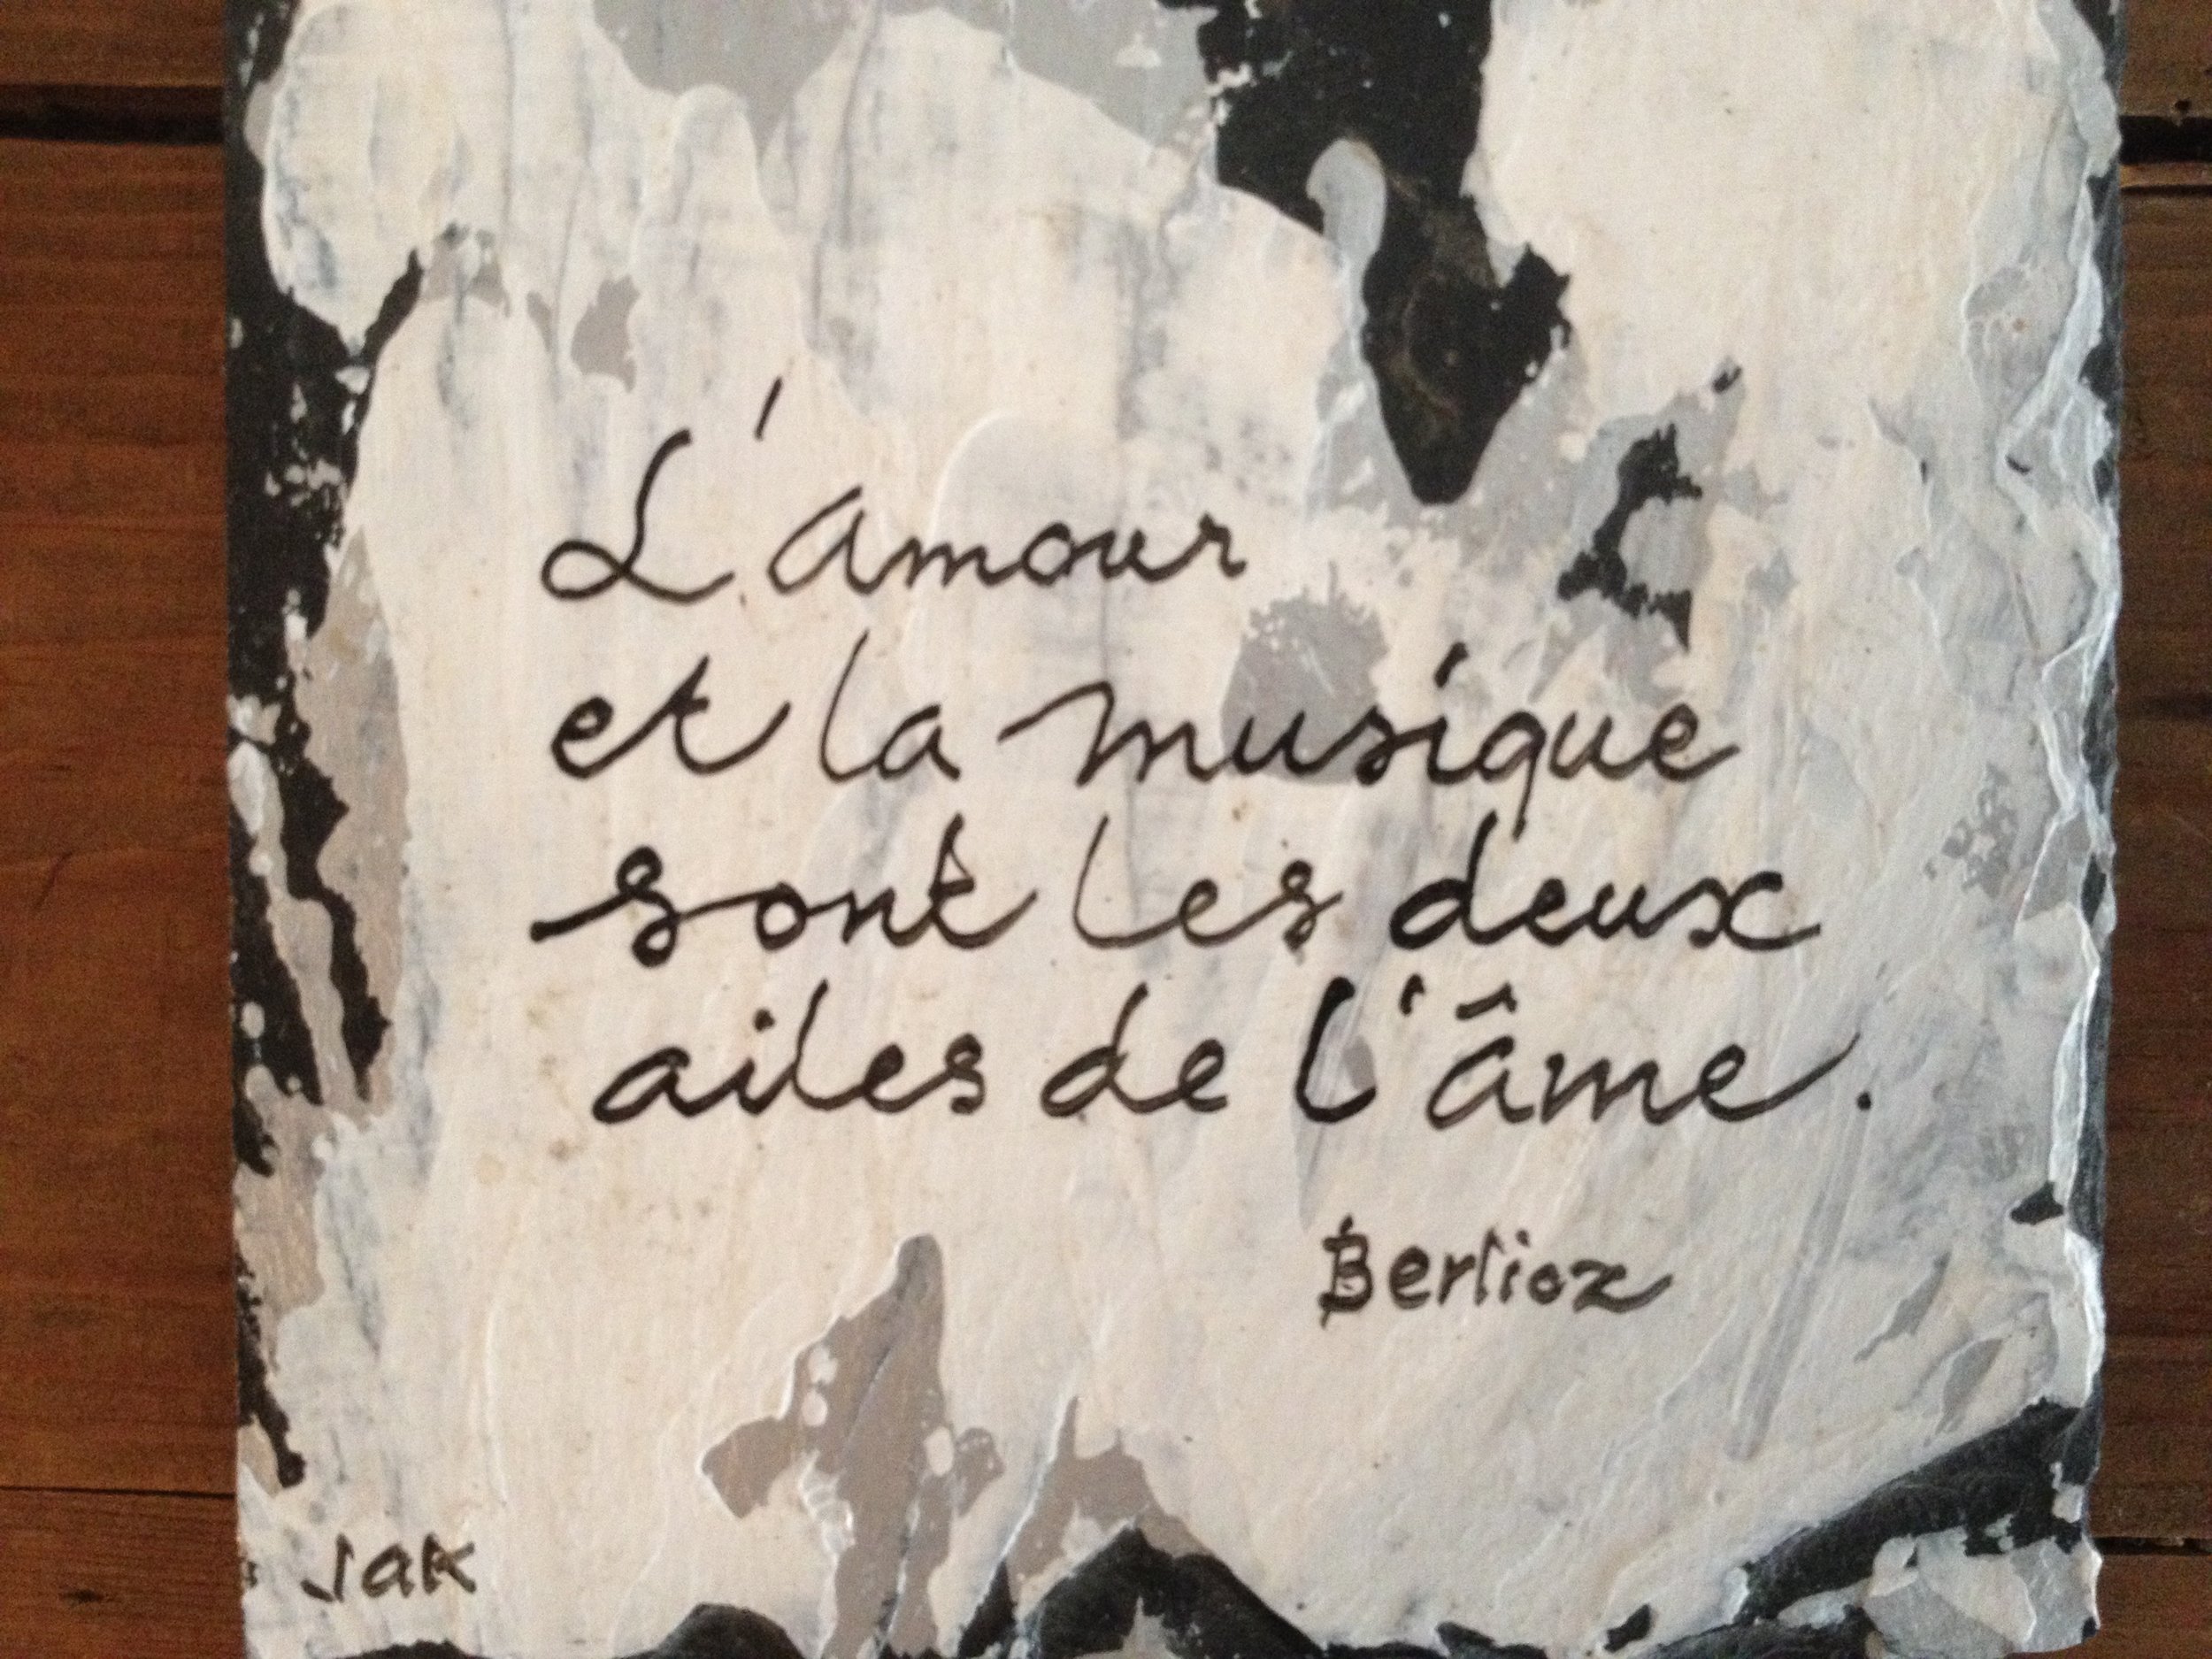 L'amour
et la musique
sont les deux
ailes de l'âme.
Berlioz
Jak